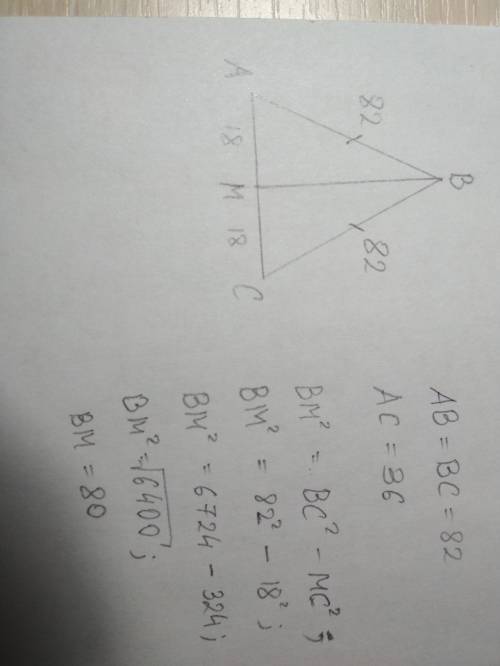 B
82
82
A
18
M
18
C
AB = BC = 82
AC = 36
BM² = BC² - MC²;
BM² = 82² - 18²;
BM² = 6724 - 324;
BM² = √6400;
BM = 80